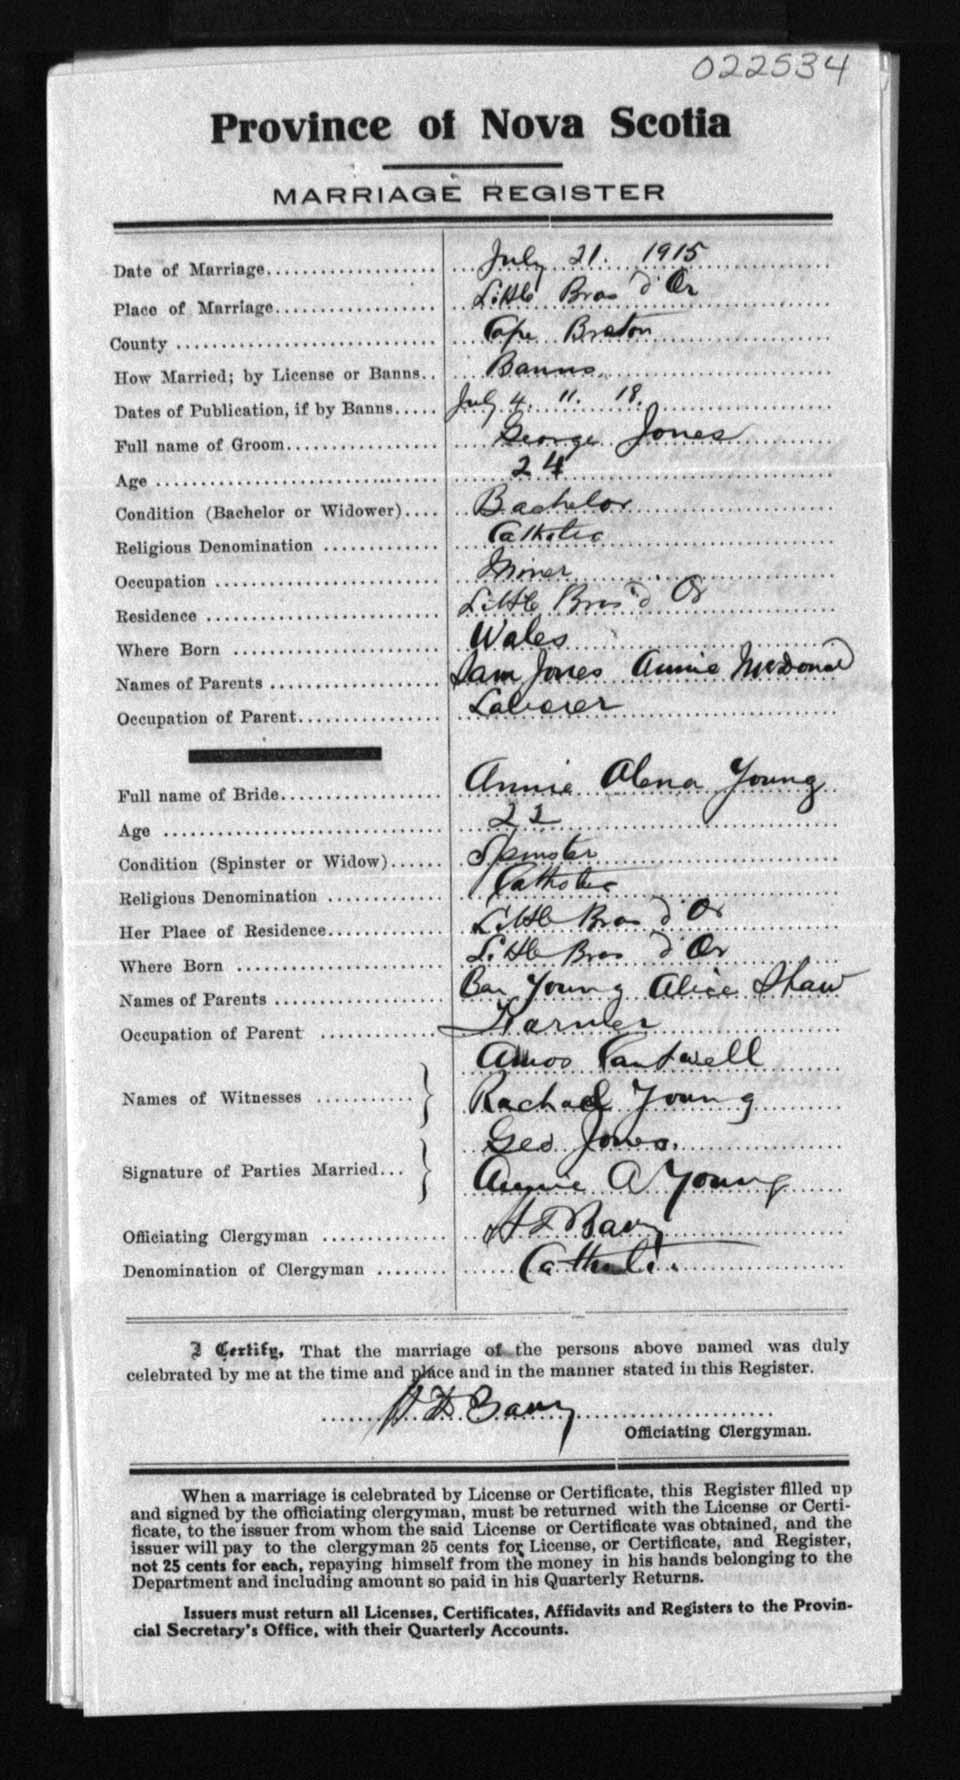 022534
Province of Nova Scotia
MARRIAGE REGISTER
Date of Marriage................... July 21. 1915
Place of Marriage.................. Little Bras d'Or
County ............................ Cape Breton
How Married; by License or Banns.. Banns
Dates of Publication, if by Banns..... July 4. 11. 18.
Full name of Groom................. George Jones
Age ............................... 24
Condition (Bachelor or Widower).... Bachelor
Religious Denomination ............. Catholic
Occupation ........................ Miner
Residence ......................... Little Bras d'Or
Where Born ........................ Wales
Names of Parents .................. Sam Jones Annie McDonald
Occupation of Parent................ Laborer
Full name of Bride.................. Annie Alena Young
Age ............................... 22
Condition (Spinster or Widow)...... Spinster
Religious Denomination ............. Catholic
Her Place of Residence............. Little Bras d'Or
Where Born ........................ Little Bras d'Or
Names of Parents .................. Young Alice Shaw
Occupation of Parent ............... Farmer
Amos Cantwell
Names of Witnesses ........... } Rachael Young
Geo Jones.
Signature of Parties Married... } Annie A Young
Officiating Clergyman .............
Denomination of Clergyman ........ Catholic
I Certify, That the marriage of the persons above named was duly
celebrated by me at the time and place and in the manner stated in this Register.
Officiating Clergyman.
When a marriage is celebrated by License or Certificate, this Register filled up
and signed by the officiating clergyman, must be returned with the License or Certi-
ficate, to the issuer from whom the said License or Certificate was obtained, and the
issuer will pay to the clergyman 25 cents for License, or Certificate, and Register,
not 25 cents for each, repaying himself from the money in his hands belonging to the
Department and including amount so paid in his Quarterly Returns.
Issuers must return all Licenses, Certificates, Affidavits and Registers to the Provin-
cial Secretary's Office, with their Quarterly Accounts.